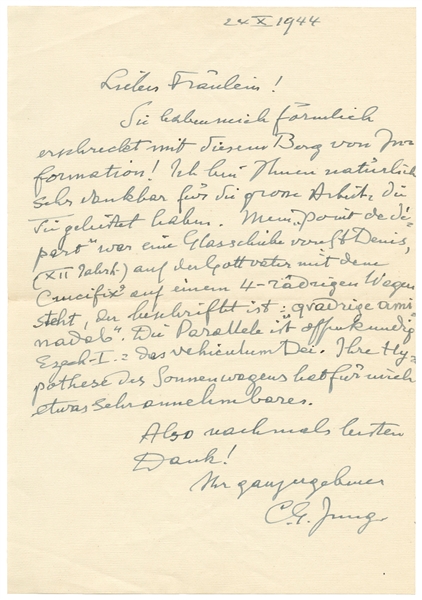 24 X 1944
Liebes Fräulein!
Sie haben mich förmlich
erschreckt mit diesem Berg von In=
formation! Ich bin Ihnen natürlich
sehr dankbar für die grosse Arbeit, die
Sie geleistet haben. Mein „Point de dé=
part" war eine Glasscheibe von St Denis,
(XII Jahrh.) auf der Gottvater mit dem
Crucifix auf einem 4-rädrigen Wagen
steht, der beschriftet ist: „quadrige ami
nadab". Die Parallele ist offenkundig
Ezech-I. = das vehiculum Dei. Ihre Hy=
pothese des Sonnenwagens hat für mich
etwas sehr annehmbares.
Also nochmals besten
Dank!
Ihr ganz ergebener
C. G. Jung